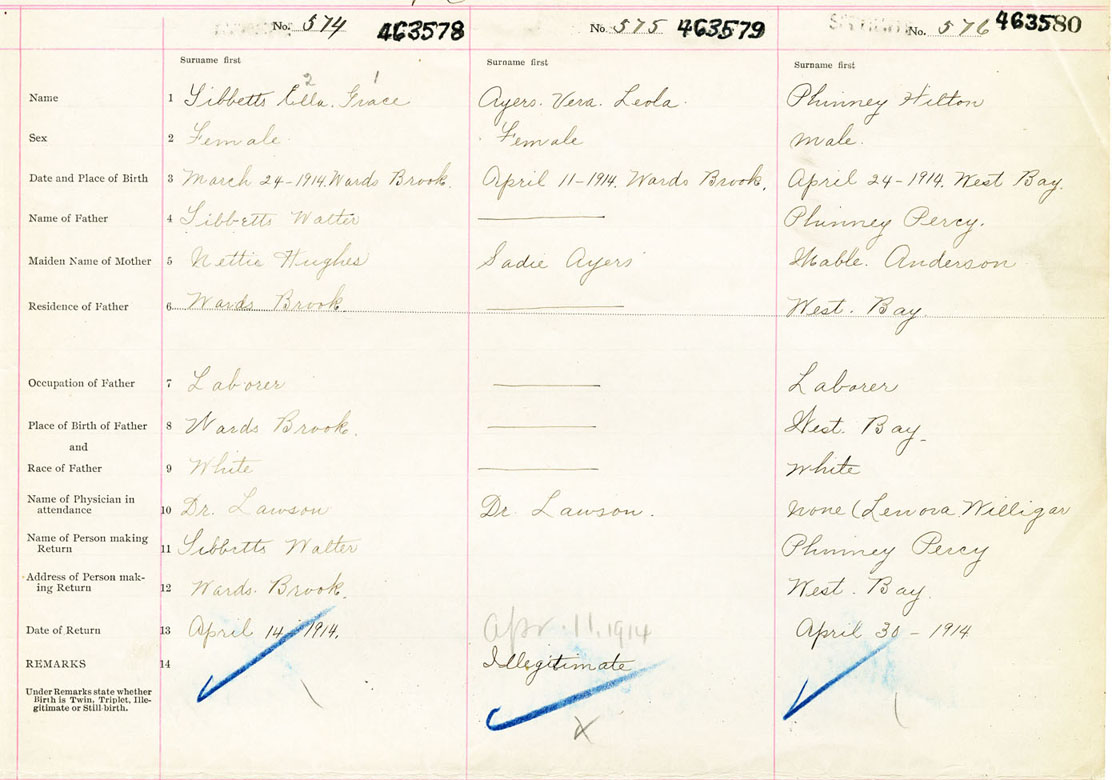 No. 574 463578 No. 575 463579 No. 576 463580
Surname first Surname first Surname first
2 1
Name 1 Tibbetts Ella. Grace Ayers. Vera. Leola. Phinney Hilton
Sex 2 Female. Female male.
Date and Place of Birth 3 March 24-1914. Wards Brook. April 11-1914. Wards Brook. April 24-1914. West Bay.
Name of Father 4 Tibbetts Walter Phinney Percy.
Maiden Name of Mother 5 Nettie Hughes Sadie Ayers Mable. Anderson
Residence of Father 6 Wards Brook West. Bay.
Occupation of Father 7 Laborer Laborer
Place of Birth of Father 8 Wards Brook. West. Bay.
and
Race of Father 9 White White
Name of Physician in
attendance 10 Dr. Lawson Dr. Lawson. none (Lenova Willigar
Name of Person making
Return 11 Tibbetts Walter Phinney Percy
Address of Person mak-
ing Return 12 Wards. Brook. West. Bay.
Date of Return 13 April 14 - 1914. Apr. 11, 1914 April 30 - 1914
REMARKS 14 Illegitimate
Under Remarks state whether
Birth is Twin, Triplet, Ille-
gitimate or Still-birth.
x